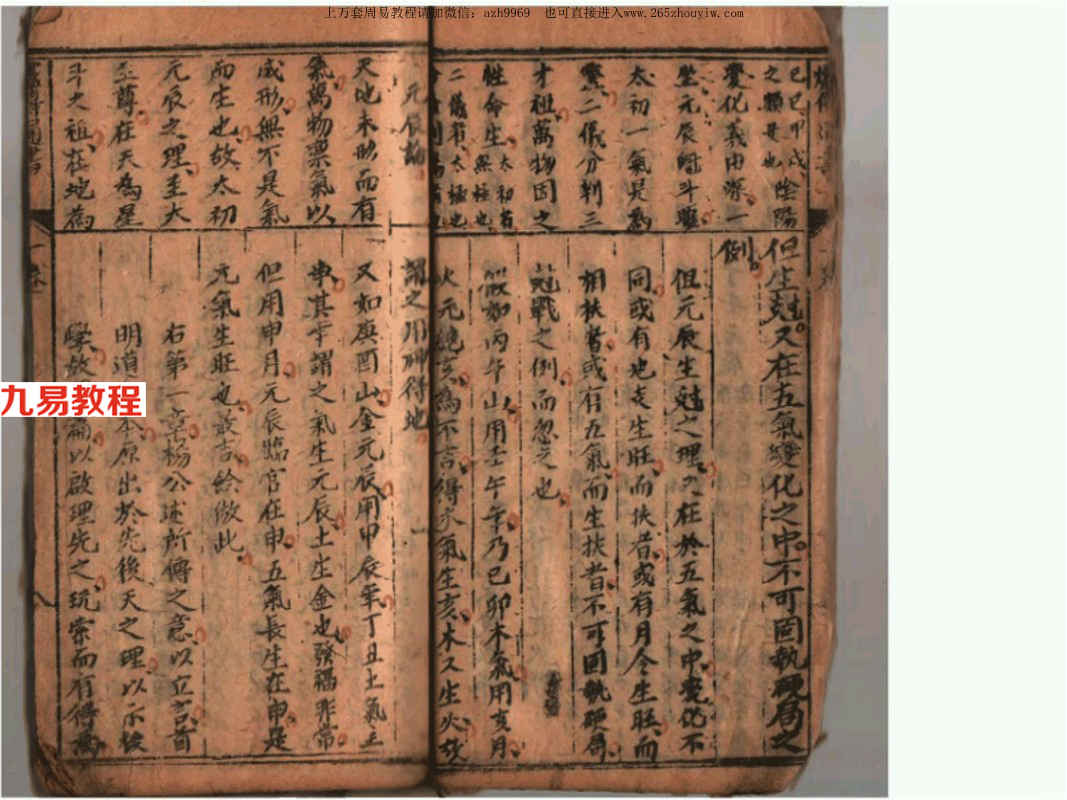 上万套周易教程请加微信：azh9969　也可直接进入www.265zhouyiw.com
九易教程
己巳甲戌陰陽
之類是也
變化義由深一
坐元辰歸斗
太初一氣是為
二儀分判三
才祖萬物固之
性命生太初者
無極也
二儀者太極也
但生尅又在五氣變化之中不可固執硬局之
例
但元辰生尅之理又在於五氣之中變化不
同或有地支生旺而扶者或有月令生旺而
相扶者或有五氣而生扶者不可固執硬局
尅戰之例而忽之也
假如丙午山用壬午年乃己卯木氣用亥月
火元絕亥為不吉得木氣生亥木又生火故
謂之用神得地
元辰論
天地未改而有
氣萬物禀氣以
成形無不是氣
而生也故太初
元辰之理至大
至尊在天為星
斗之祖在地為
又如庚酉山金元辰用甲辰年丁丑土氣主
事其年謂之氣生元辰土生金也發福非常
但用申月元辰臨官在申五氣長生在申是
元氣生旺也最吉餘倣此
右第一章楊公述所傳之意以立言首
明道本原出於先後天之理以示後
學故篇以啟理先之玩索而有得焉